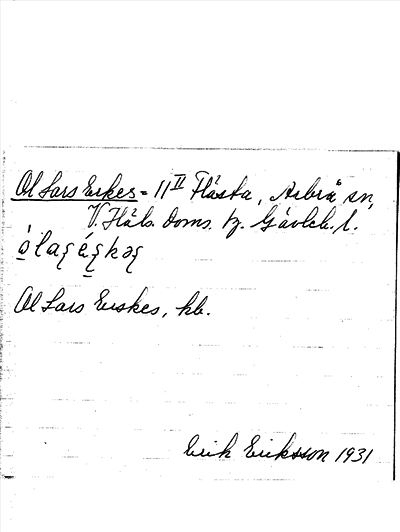 Ol Lars Erskes = 11 II Flästa, Arbrå sn,
V. Häls. doms. tj. Gävleb. l.
Ol Lars Erskes, kb.
Erik Eriksson 1931